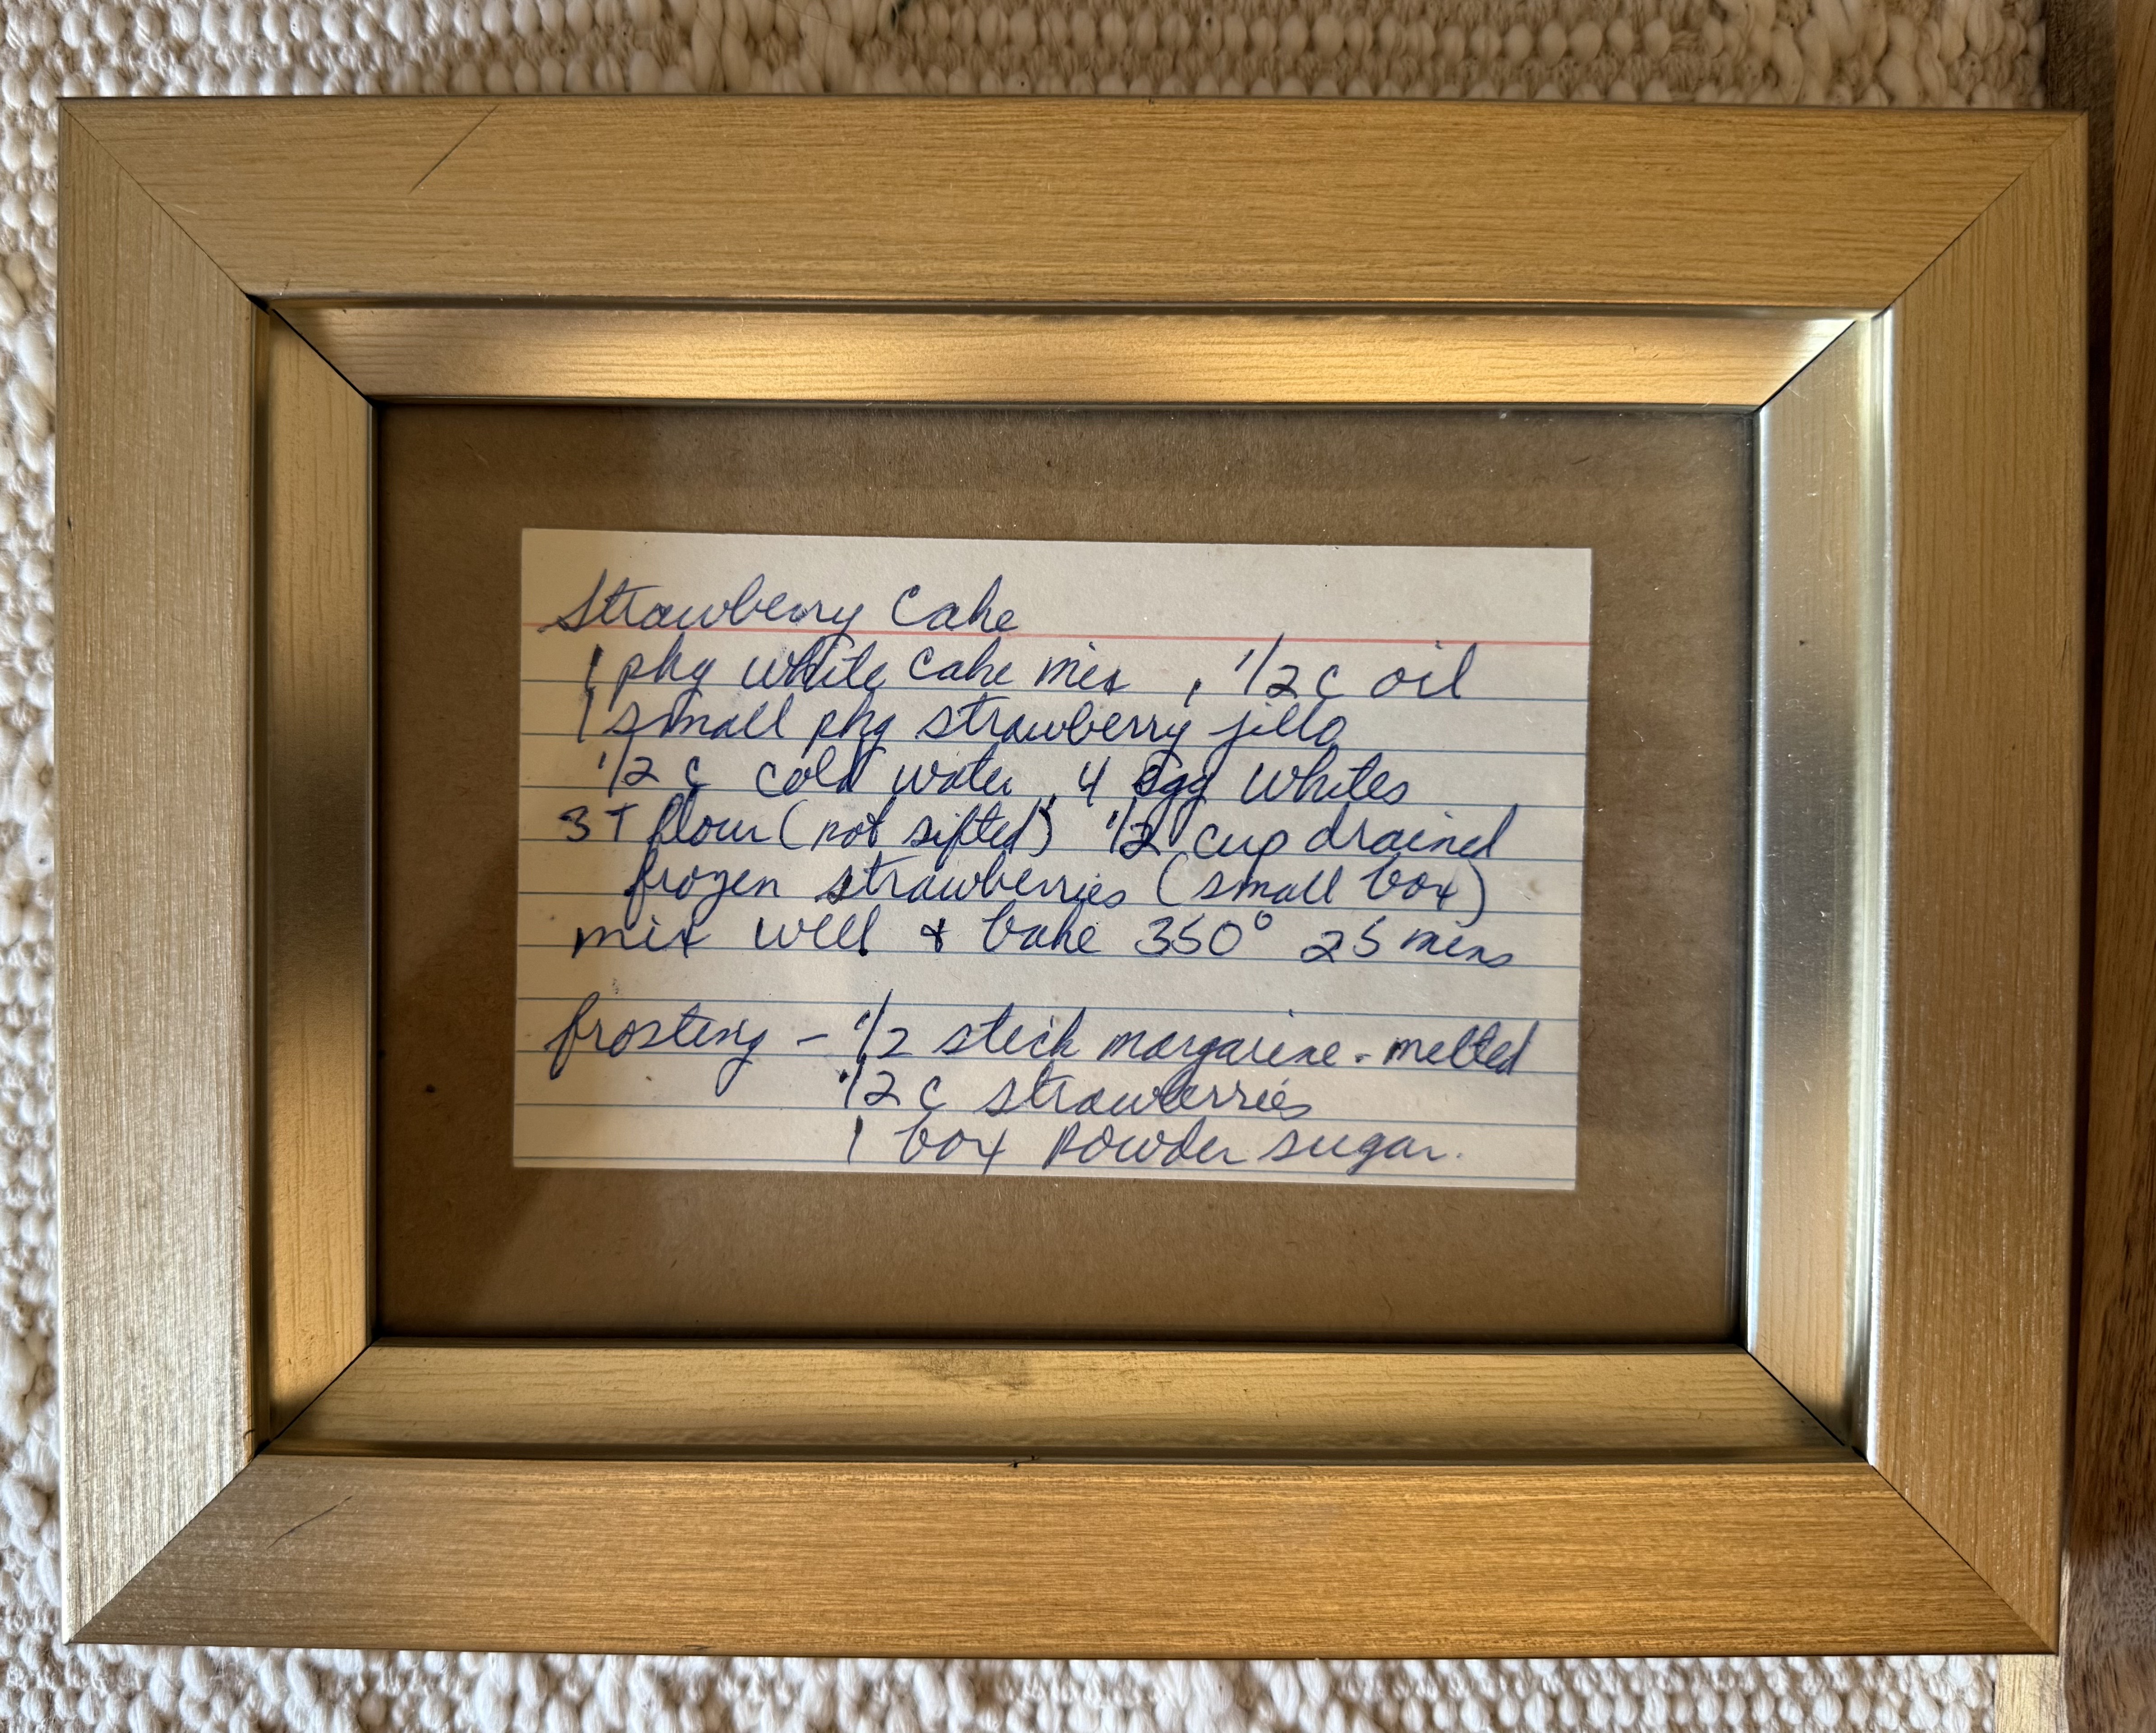 Strawberry Cake
1 pkg white cake mix , 1/2 c oil
1 small pkg strawberry jello
1/2 c cold water, 4 egg whites
3 T flour (not sifted) 1/2 cup drained
frozen strawberries (small box)
mix well & bake 350° 25 mins
frosting - 1/2 stick margarine - melted
1/2 c strawberries
1 box powder sugar.